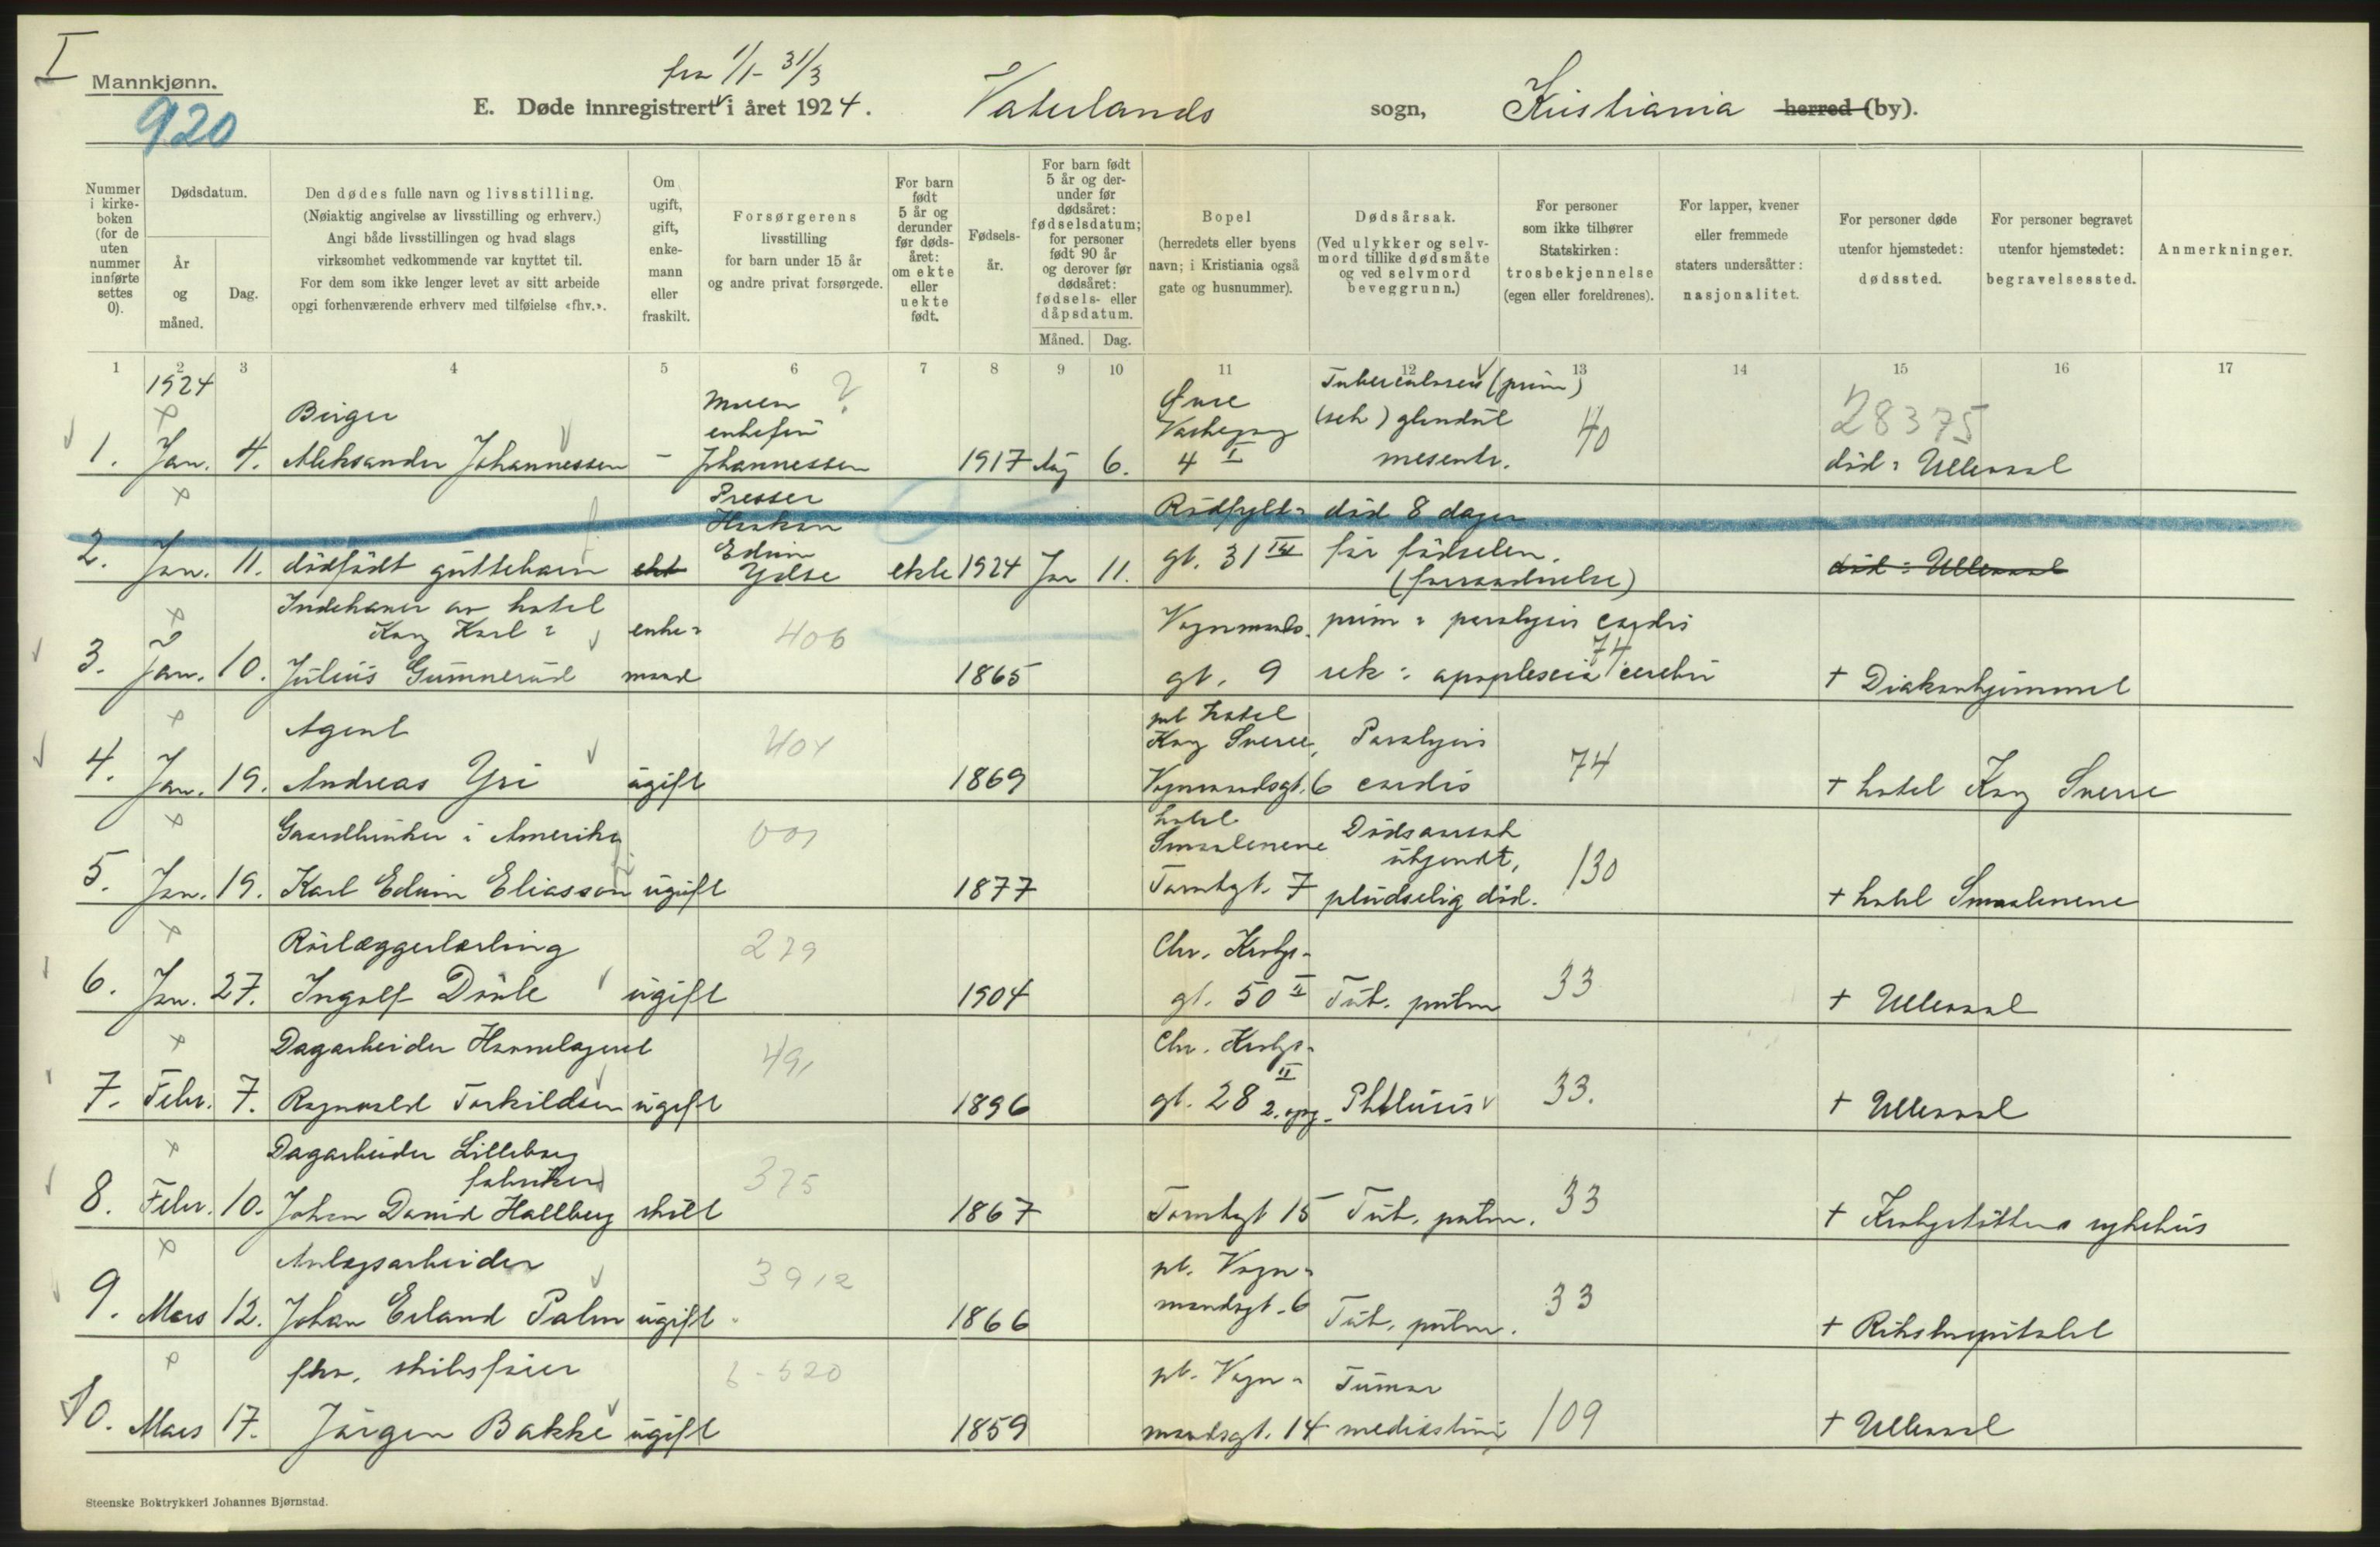 I
Mannkjønn.
920
fra 1/1 - 31/3
E. Døde innregistrert i året 1924.
Vaterlands sogn, Kristiania herred (by).
Nummer i kirkeboken (for de uten nummer innførte settes 0).
Dødsdatum.
År og måned.
Dag.
Den dødes fulle navn og livsstilling.
(Nøiaktig angivelse av livsstilling og erhverv.)
Angi både livsstillingen og hvad slags
virksomhet vedkommende var knyttet til.
For dem som ikke lenger levet av sitt arbeide
opgi forhenværende erhverv med tilføielse «fhv.».
Om ugift, gift, enkemann eller fraskilt.
Forsørgerens
livsstilling
for barn under 15 år
og andre privat forsørgede.
For barn født 5 år og derunder før dødsåret: om ekte eller uekte født.
Fødselsår.
For barn født 5 år og derunder før dødsåret: fødselsdatum; for personer født 90 år og derover før dødsåret: fødsels- eller dåpsdatum.
Måned. Dag.
Bopel
(herredets eller byens
navn; i Kristiania også
gate og husnummer).
Dødsårsak.
(Ved ulykker og selvmord tillike dødsmåte og ved selvmord beveggrunn.)
For personer
som ikke tilhører
Statskirken:
trosbekjennelse
(egen eller foreldrenes).
For lapper, kvener
eller fremmede
staters undersåtter:
nasjonalitet.
For personer døde
utenfor hjemstedet:
dødssted.
For personer begravet
utenfor hjemstedet:
begravelsessted.
Anmerkninger.
1 2 3 4 5 6 7 8 9 10 11 12 13 14 15 16 17
1924
Birger Moren ? Øvre Tuberculosen (prim)
enkefru (sek) glandul 40 28375
1. Jan. 4. Aleksander Johannessen - Johannessen 1917 Aug 6. 4 I mesentr. död: Ullevaal
Presser
Haakon Rödfyld- död 8 dager
2. Jan. 11. dödfödt guttebarn ekt Edvin ekte 1924 Jan 11. gt. 31 för födselen.
död: Ullevaal
Indehaver av hotel
Kong Karl enke- 406 Vognmands- prim: paralysis cordis
3. Jan. 10. Julius Gumnerud mand 1865 gt. 9 sek: apoplexia cerebri 74 + Diakonhjemmet
Agent hotel
Kong Sverre, Paralysis
4. Jan. 19. Andreas Yri ugift 1869 Vognmandsgt. 6 cordis 74 + hotel Kong Sverre
Gaardbruker i Amerika hotel
Smaalenene Dödsaarsak
ukjendt,
5. Jan. 19. Karl Edvin Eliasson ugift 1877 Tomtegt. 7 pludselig död. 130 + hotel Smaalenene
Rörlæggerlærling 279 Chr. Krohgs-
6. Jan. 27. Ingolf ugift 1904 gt. 50 II Tub. pulm 33 + Ullevaal
Dagarbeider Havnelageret 491 Chr. Krohgs-
7. Febr. 7. Ragnvald Torkildsen ugift 1896 gt. 28 II 2. opg. Phthisis 33. + Ullevaal
Dagarbeider Lilleborg
fabriker 375
8. Febr. 10. Johan David Hallberg skilt 1867 Tomtegt 15 Tub. pulm. 33 + Krohgstöttens sykehus
Anlægsarbeider 3912 pt. Vogn-
9. Mars 12. Johan Erland Palm ugift 1866 mandsgt. 6 Tub. pulm. 33 + Rikshospitalet
fhv. skibsfører 6-520 pt. Vogn- Tumor
10. Mars 17. Jörgen Bakke ugift 1859 mandsgt. 14 mediastini 109 + Ullevaal
Steenske Boktrykkeri Johannes Bjørnstad.